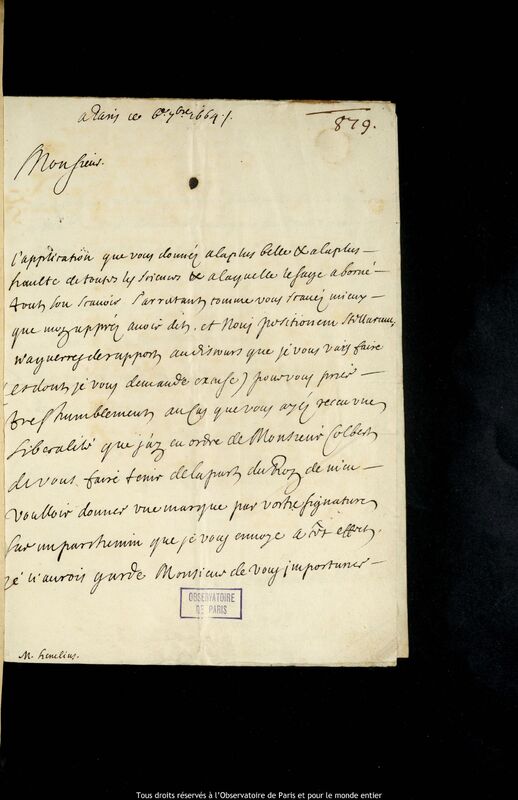 a Paris ce 6e 7bre 1664 ./.
879.
Monsieur.
L'application que vous donnés a la plus belle & a la plus
haulte de toutes les sciences & a laquelle le sage a borné
tout son scavoir s'arrutant comme vous scavés mieux
que moy apprés avoir dit, et Novi positionem Stellarum,
n'ayguerres de rapport au discours que je vous vais faire
(et dont je vous demande excuse) pour vous prier
tres humblement au cas que vous ayés receu une
Liberalité que j'ay eu ordre de Monsieur Colbert
de vous faire tenir de la part du Roy de m'en
voulloir donner une marque par vostre signature
sur un parchemin que je vous envoye a cet effect,
je n'aurois garde Monsieur de vous importuner
OBSERVATOIRE
DE PARIS
M. hevelius.
Tous droits réservés à l'Observatoire de Paris et pour le monde entier